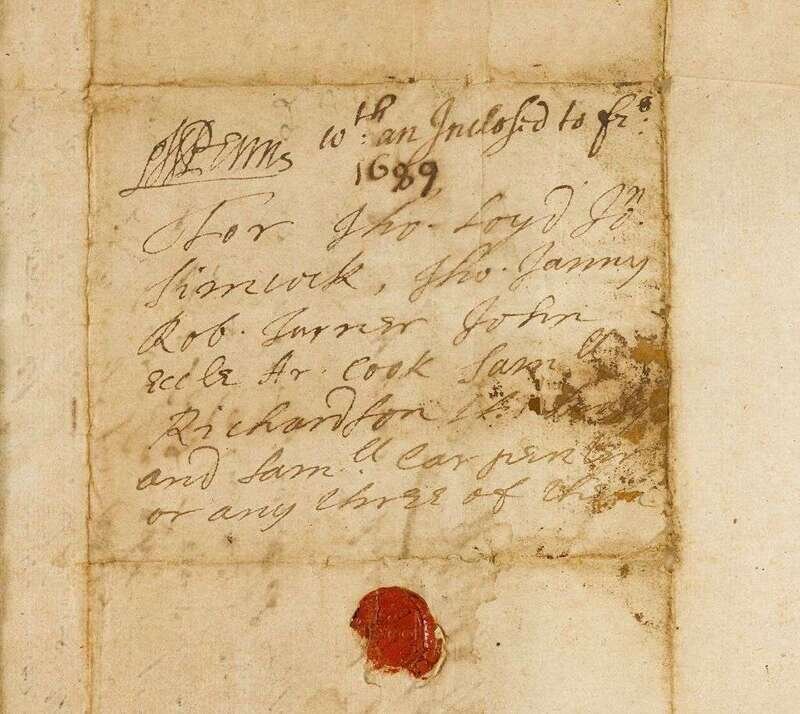 WPenns wth. an Inclosed to frs.
1689
For Tho. Loyd Jon.
Simcock, Tho. Janny
Rob. Turner John
Eccle Ar. Cook Samll
Richardson
and Samll Carpenter
or any three of them